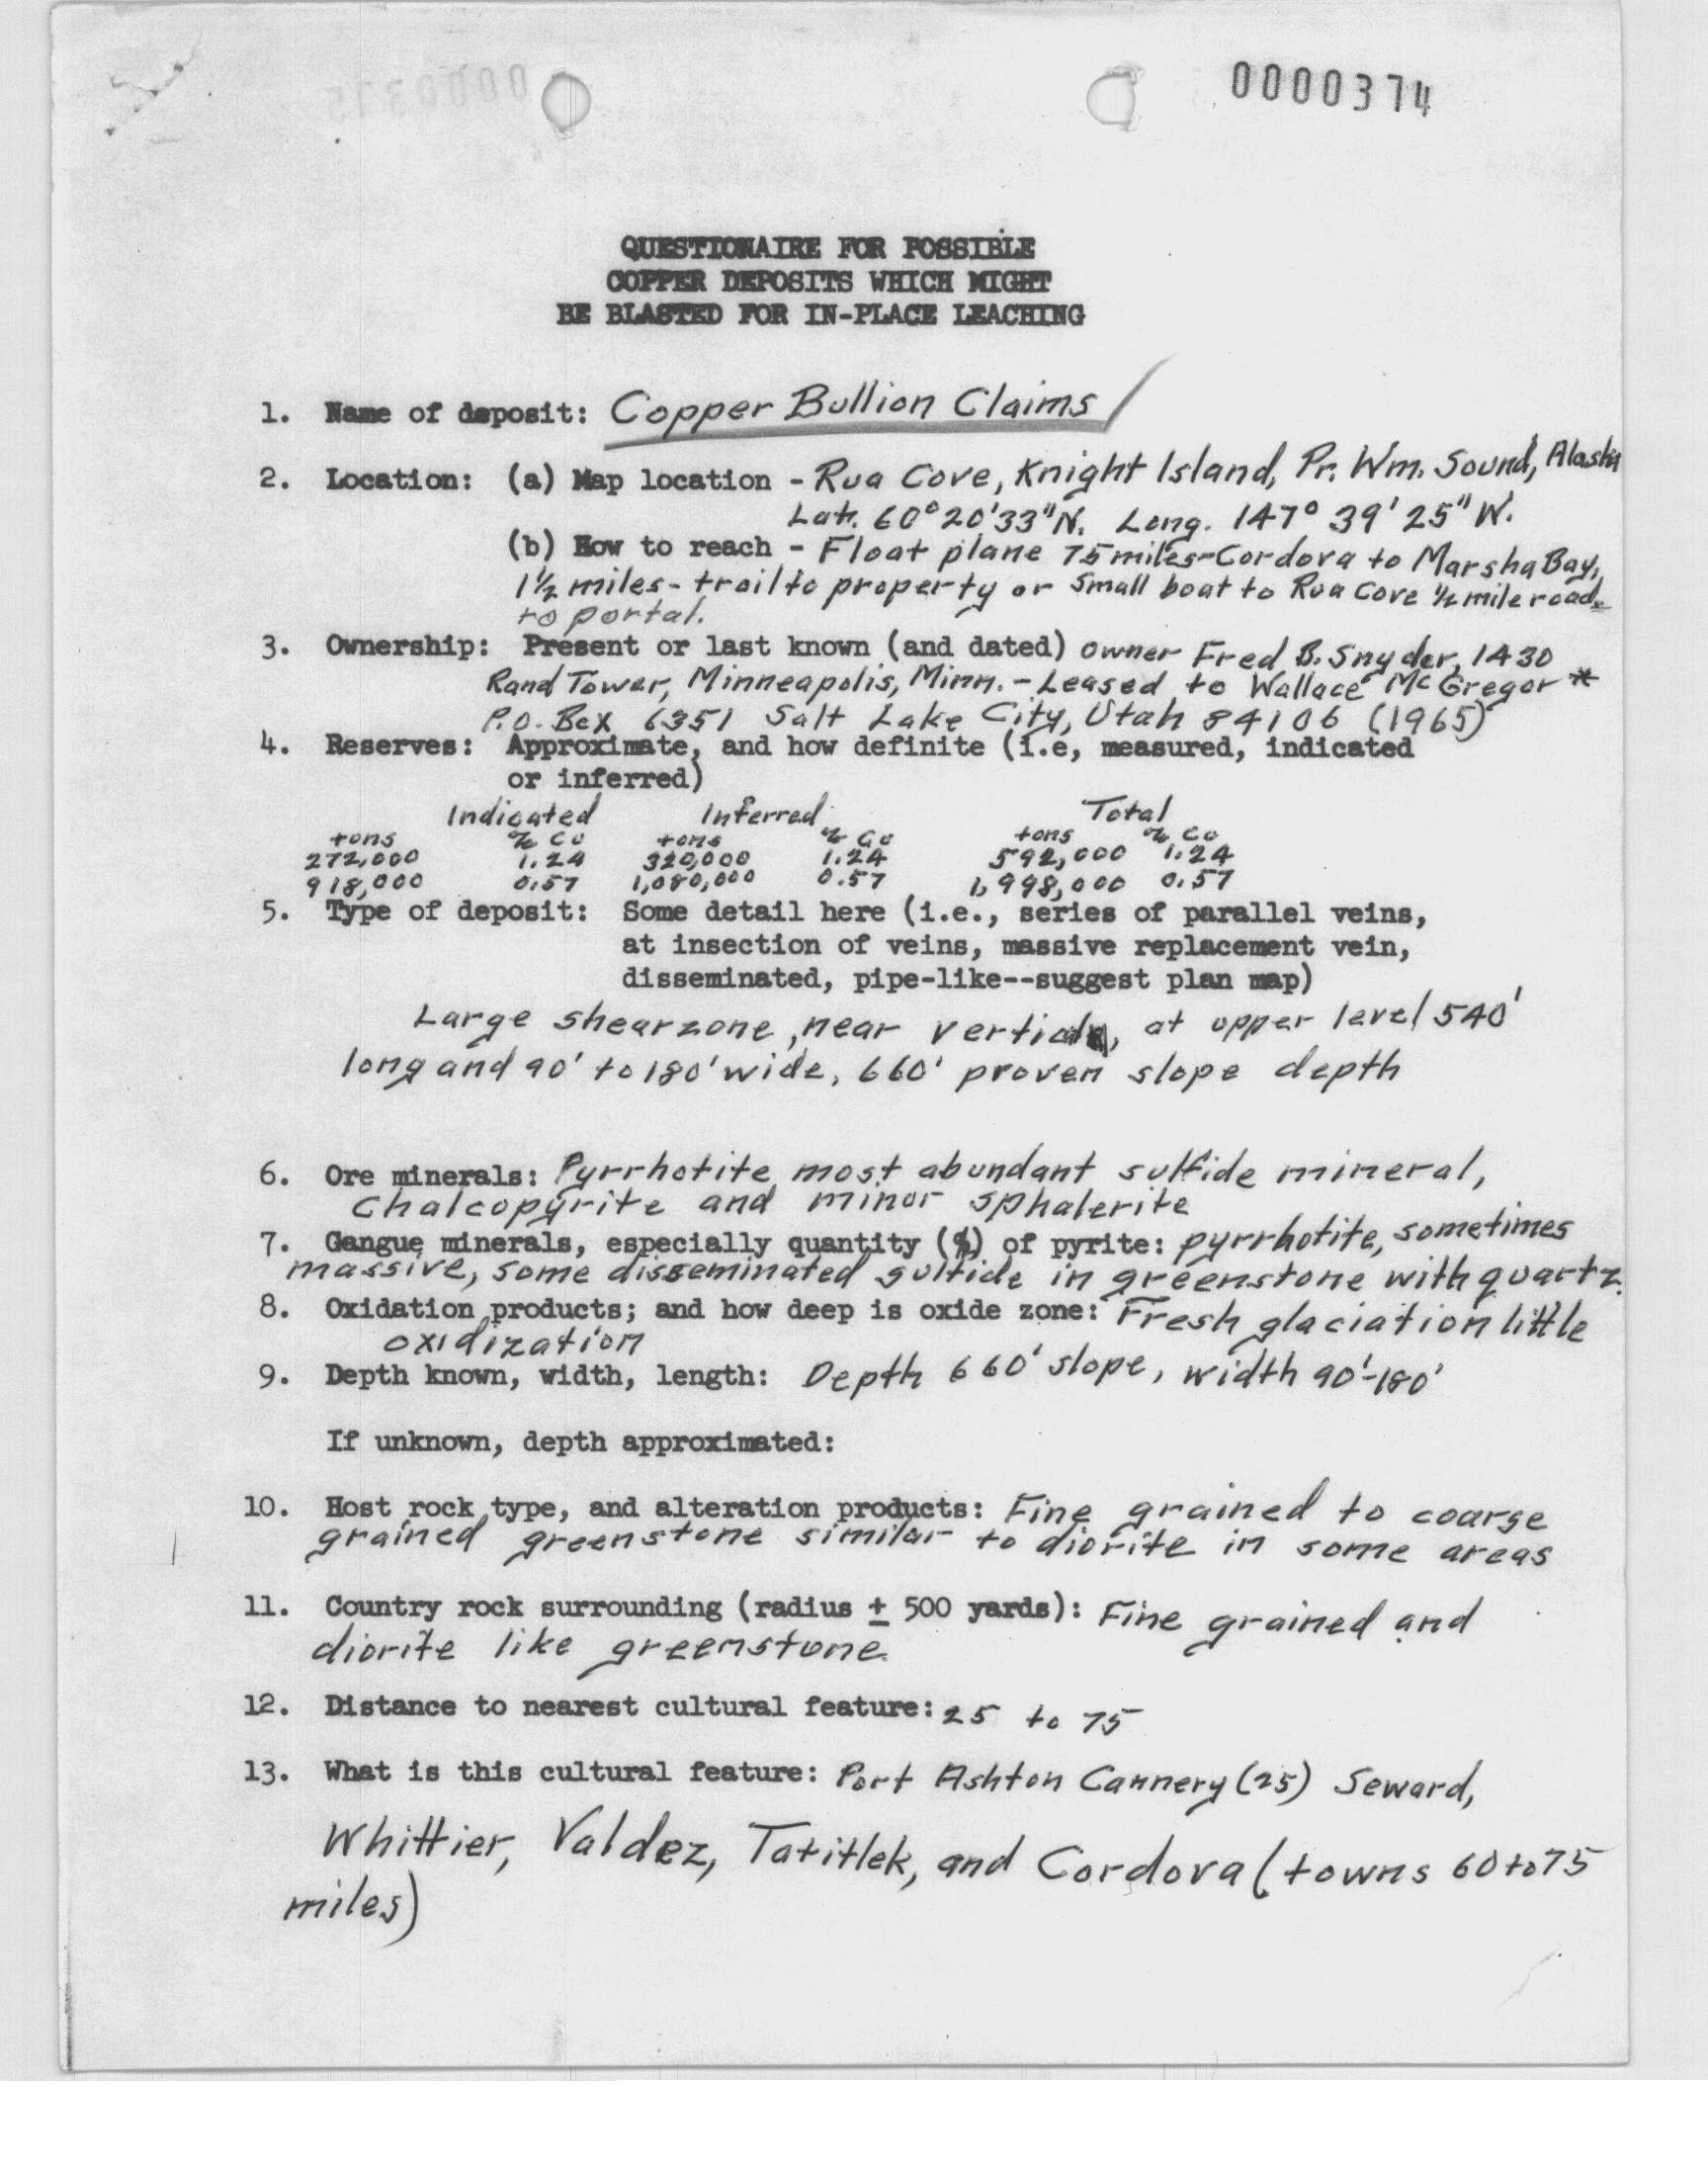 0000374
0000375
QUESTIONAIRE FOR POSSIBLE
COPPER DEPOSITS WHICH MIGHT
BE BLASTED FOR IN-PLACE LEACHING
1. Name of deposit: Copper Bullion Claims
2. Location: (a) Map location - Rua Cove, Knight Island, Pr. Wm. Sound, Alaska
Lat. 60°20'33"N. Long. 147° 39' 25" W.
(b) How to reach - Float plane 75 miles-Cordova to Marsha Bay,
1½ miles - trail to property or small boat to Rua Cove ½ mile road
to portal.
3. Ownership: Present or last known (and dated) owner Fred B. Snyder, 1430
Rand Tower, Minneapolis, Minn. - Leased to Wallace McGregor *
P.O. Box 6351 Salt Lake City, Utah 84106 (1965)
4. Reserves: Approximate, and how definite (i.e, measured, indicated
or inferred)
Indicated Inferred Total
tons % Cu tons % Cu tons % Cu
272,000 1.24 320,000 1.24 592,000 1.24
918,000 0.57 1,080,000 0.57 1,998,000 0.57
5. Type of deposit: Some detail here (i.e., series of parallel veins,
at insection of veins, massive replacement vein,
disseminated, pipe-like--suggest plan map)
Large shearzone, near vertical, at upper level 540'
long and 90' to 180' wide, 660' proven slope depth
6. Ore minerals: Pyrrhotite most abundant sulfide mineral,
chalcopyrite and minor sphalerite
7. Gangue minerals, especially quantity (%) of pyrite: pyrrhotite, sometimes
massive, some disseminated sulfide in greenstone with quartz.
8. Oxidation products; and how deep is oxide zone: Fresh glaciation little
oxidization
9. Depth known, width, length: Depth 660' slope, width 90'-180'
If unknown, depth approximated:
10. Host rock type, and alteration products: Fine grained to coarse
grained greenstone similar to diorite in some areas
11. Country rock surrounding (radius ± 500 yards): Fine grained and
diorite like greenstone
12. Distance to nearest cultural feature: 25 to 75
13. What is this cultural feature: Port Ashton Cannery (25) Seward,
Whittier, Valdez, Tatitlek, and Cordova (towns 60 to 75
miles)